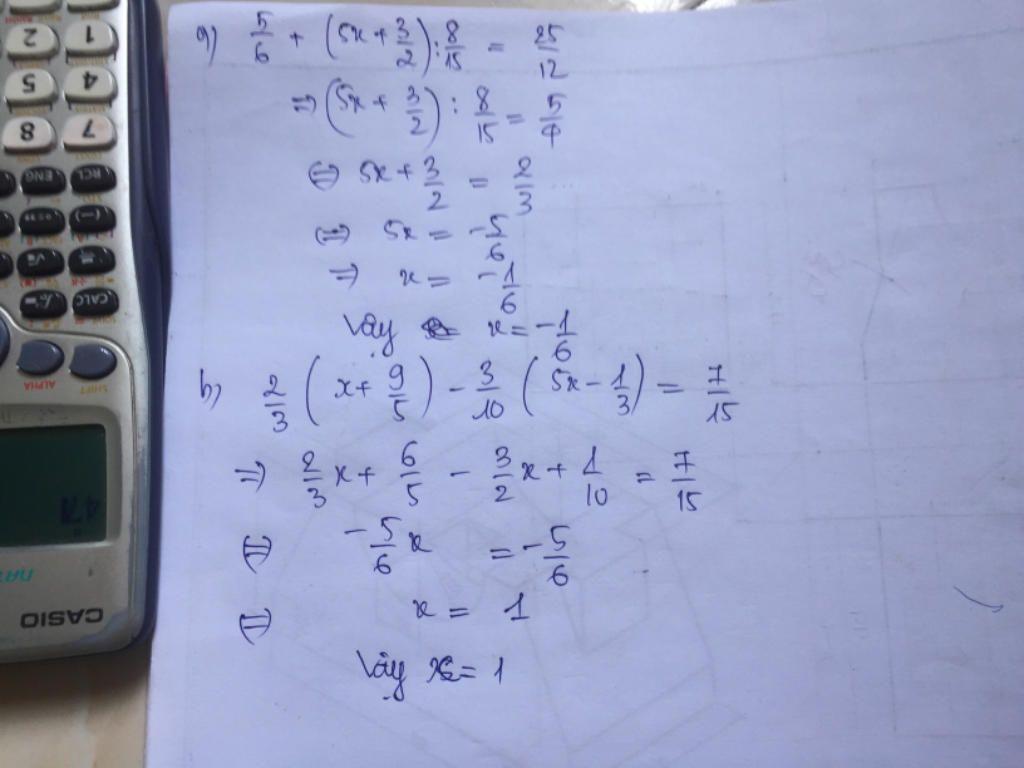 a) 5/6 + (5x + 3/2) : 8/15 = 25/12
⇒ (5x + 3/2) : 8/15 = 5/4
⇔ 5x + 3/2 = 2/3
⇔ 5x = -5/6
⇒ x = -1/6
Vậy x = -1/6
b) 2/3 (x + 9/5) - 3/10 (5x - 1/3) = 7/15
⇒ 2/3 x + 6/5 - 3/2 x + 1/10 = 7/15
⇔ -5/6 x = -5/6
⇔ x = 1
Vậy x = 1
1
2
4
5
7
8
RCL
ENG
(-)
CALC
SHIFT
ALPHA
CASIO